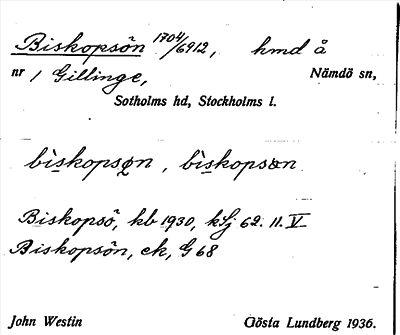 Biskopsön 1704/6912, hmd å
nr 1 Gillinge, Nämdö sn,
Sotholms hd, Stockholms l.
bìskopsǫn, bìskopsön
Biskopsö, kb 1930, kSj 62. 11. V
Biskopsön, ek, G 68
John Westin Gösta Lundberg 1936.